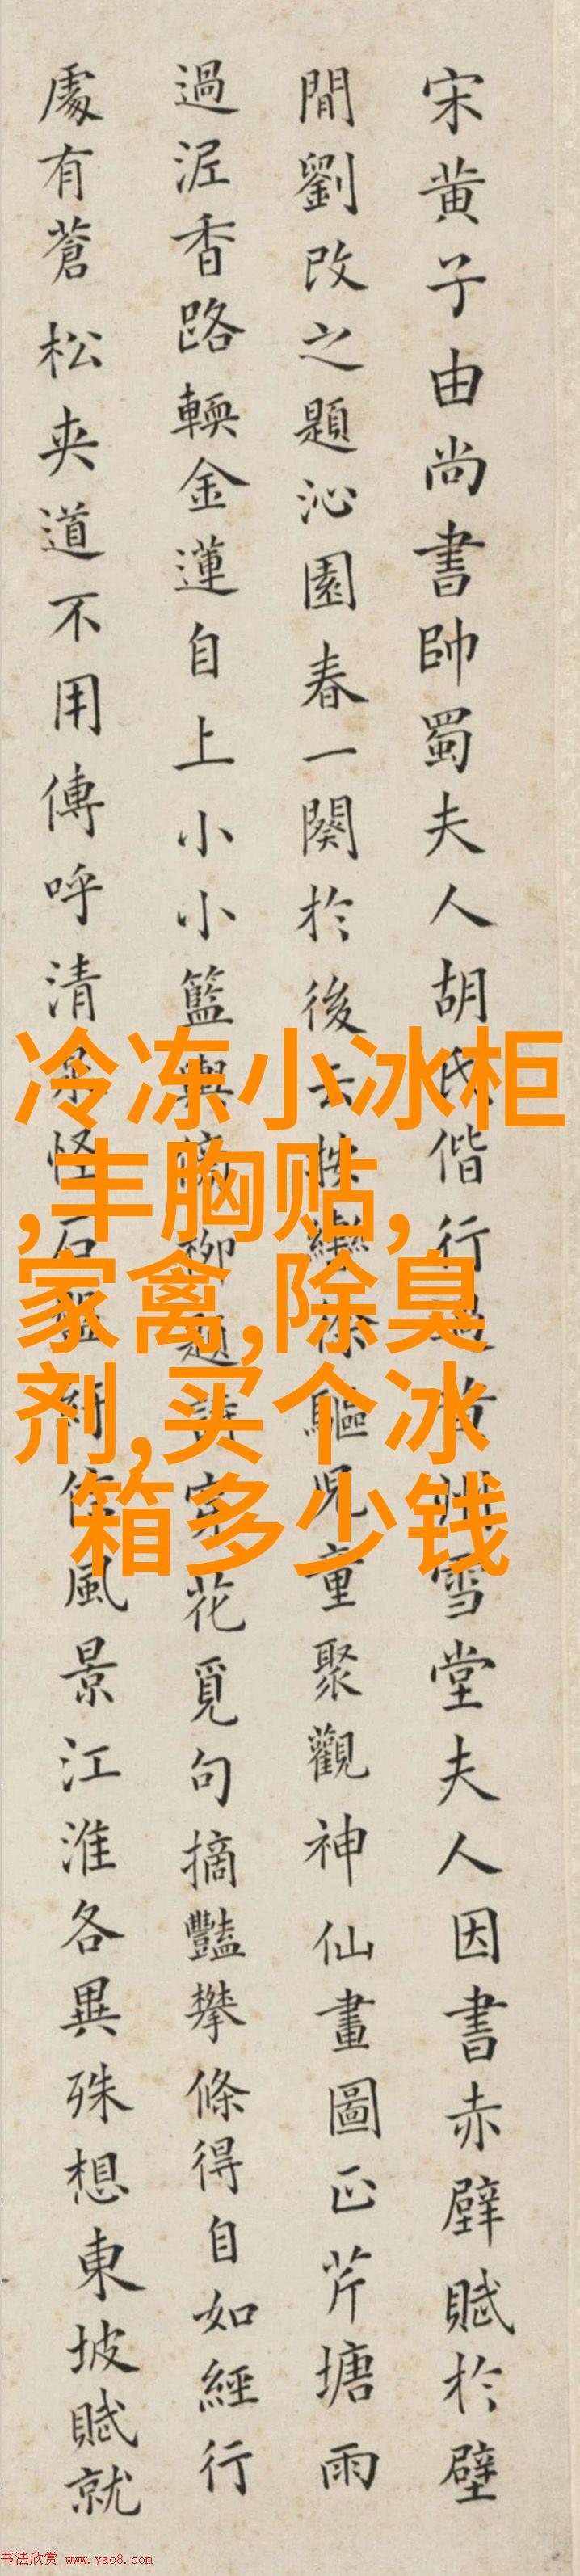 宋黄子由尚書帥蜀夫人胡氏偕行過黄州雪堂夫人因書赤壁賦於壁
間劉改之題沁園春一闋於後云按轡徐驅兒童聚觀神仙畫圖正芹塘雨
過泥香路輭金蓮自上小小籃輿傍柳題詩穿花覓句摘豔攀條得自如經行
處有蒼松夾道不用傳呼清泉怪石盤紆信風景江淮各異殊想東坡賦就
冷冻小冰柜
,丰胸贴,
家禽,除臭
剂,买个冰
箱多少钱
书法欣赏 www.yac8.com